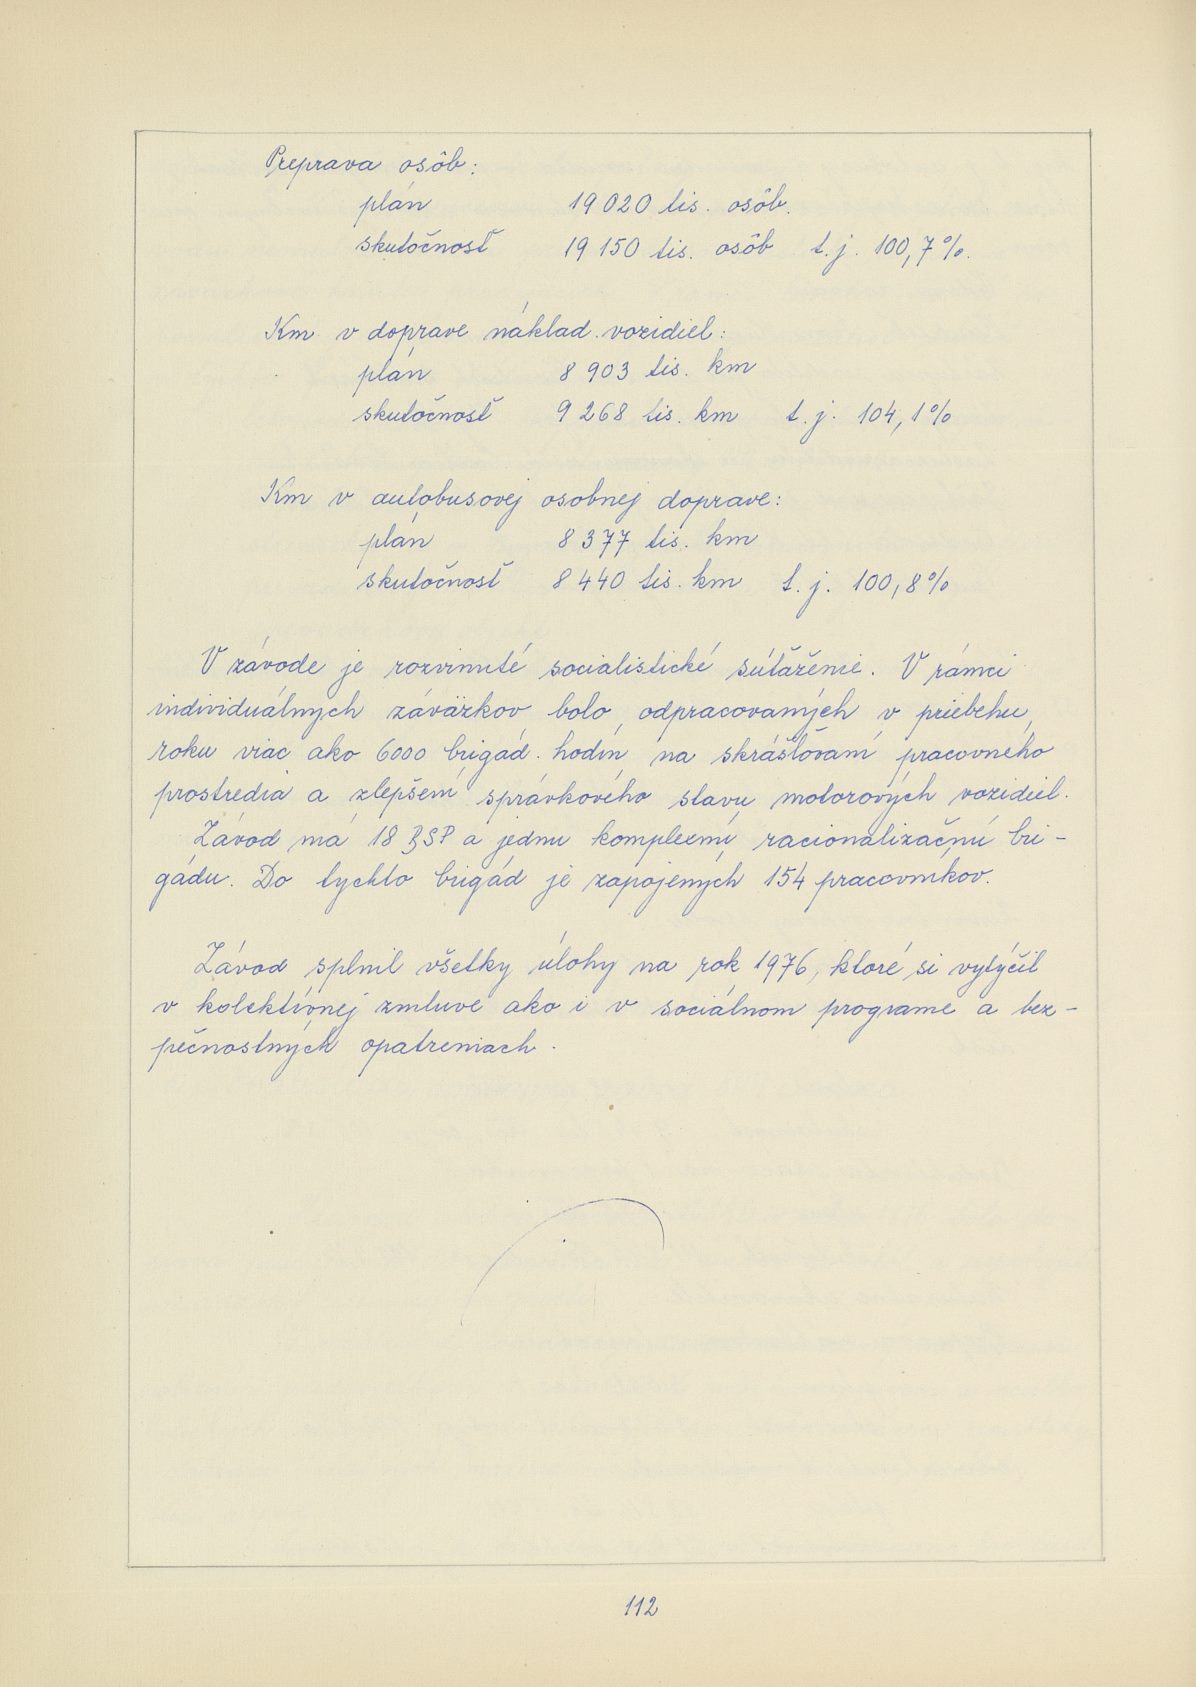 Preprava osôb:
plán 19 020 tis. osôb.
skutočnosť 19 150 tis. osôb t.j. 100,7%.
Km v doprave náklad. vozidiel:
plán 8 903 tis. km
skutočnosť 9 268 tis. km t.j. 104,1%
Km v autobusovej osobnej doprave:
plán 8 377 tis. km
skutočnosť 8 440 tis. km t.j. 100,8%
V závode je rozvinuté socialistické súťaženie. V rámci
individuálnych záväzkov bolo odpracovaných v priebehu
roku viac ako 6000 brigád. hodín na skrášľovaní pracovného
prostredia a zlepšení správkového stavu motorových vozidiel.
Závod má 18 BSP a jednu komplexnú racionalizačnú bri-
gádu. Do tychto brigád je zapojených 154 pracovníkov.
Závod splnil všetky úlohy na rok 1976, ktoré si vytýčil
v kolektívnej zmluve ako i v sociálnom programe a bez-
pečnostných opatreniach.
112